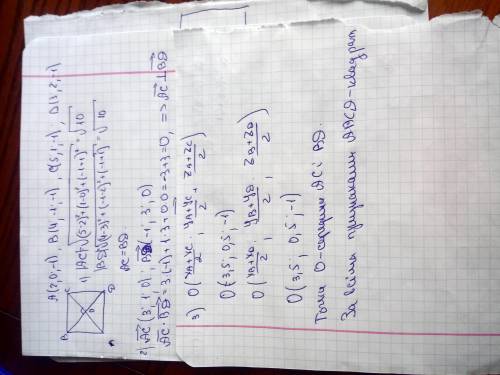 A(2,0,-1), B(4,-1,-1), C(5,1,-1), D(3,2,-1)
B C
O
D
1) |AC|=√(5-2)²+(1-0)²+(-1+1)² = √10
|BD|=√(4-3)²+(-1-2)²+(-1+1)² = √10
AC=BD
2) AC(3; 1; 0), BD(-1; 3; 0)
AC·BD=3·(-1)+1·3+0·0=-3+3=0, => AC⊥BD
3) O(xA+xC/2; yA+yC/2; zA+zC/2)
O(3,5; 0,5; -1)
O(xB+xD/2; yB+yD/2; zB+zD/2)
O(3,5; 0,5; -1)
Тома О-середина AC і BD.
За всіма признаками ABCD-квадрат